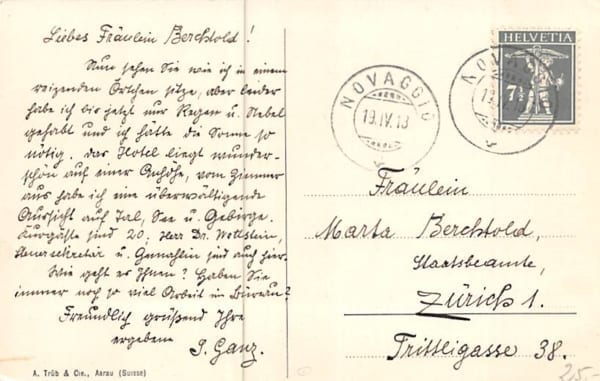 Liebes Fräulein Berchtold!
Nun sehen Sie wie ich in einem
reizenden Örtchen sitze, aber leider
habe ich bis jetzt nur Regen u. Nebel
gehabt und ich hätte die Sonne so
nötig. Das Hotel liegt wunder-
schön auf einer Anhöhe, vom Zimmer
aus habe ich eine überwältigende
Aussicht auf Tal, See u. Gebirge.
Kurgäste sind 20. Herr Dr. Wettstein,
sekretär u. Gemahlin sind auch hier.
Wie geht es Ihnen? Haben Sie
immer noch so viel Arbeit im Bureau?
Freundlich grüßend Ihre
ergebene
S. Ganz.
A. Trüb & Cie., Aarau (Suisse)
HELVETIA
7½
NOVAGGIO
19.IV.18
NOVAGGIO
Fräulein
Marta Berchtold,
Staatsbeamte,
Zürich 1.
Trittligasse 38.
25.-